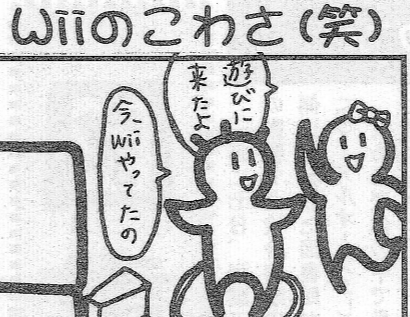 Wiiのこわさ(笑)
遊びに
来たよ
今、
Wii
やってたの